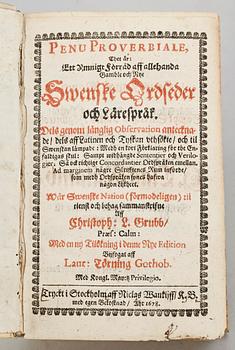 PENU PROVERBIALE,
Thet är:
Ett Ymnigt Förråd aff allehanda
Gamble och Nye
Swenske Ordseder
och Lärespråk,
Dels genom långlig Observation antecknade
/ dels aff Latinen och Tyskan uthsökte / och til
Swenskan lämpade: Med en kort förklaring för the
Sampt widhängde Sententier och
Så od richtige Concordantier Ordspråken emellan.
Ad marginem några Rim införde /
som med Ordspråken synes hafwa
någon lijkhet.
Wår Swenske Nation (förmodeligen) til
tienst och behag sammanskrifne
Aff
Christoph: L. Grubb /
Præf: Calm:
Med en ny Tillökning i denne Nye Edition
Bijfogat aff
Laur: Törning Gothob.
Med Kongl. May:tz Privilegio.
Tryckt i Stockholm aff Niclas Wankijff / K. B.
Åhr 1678.